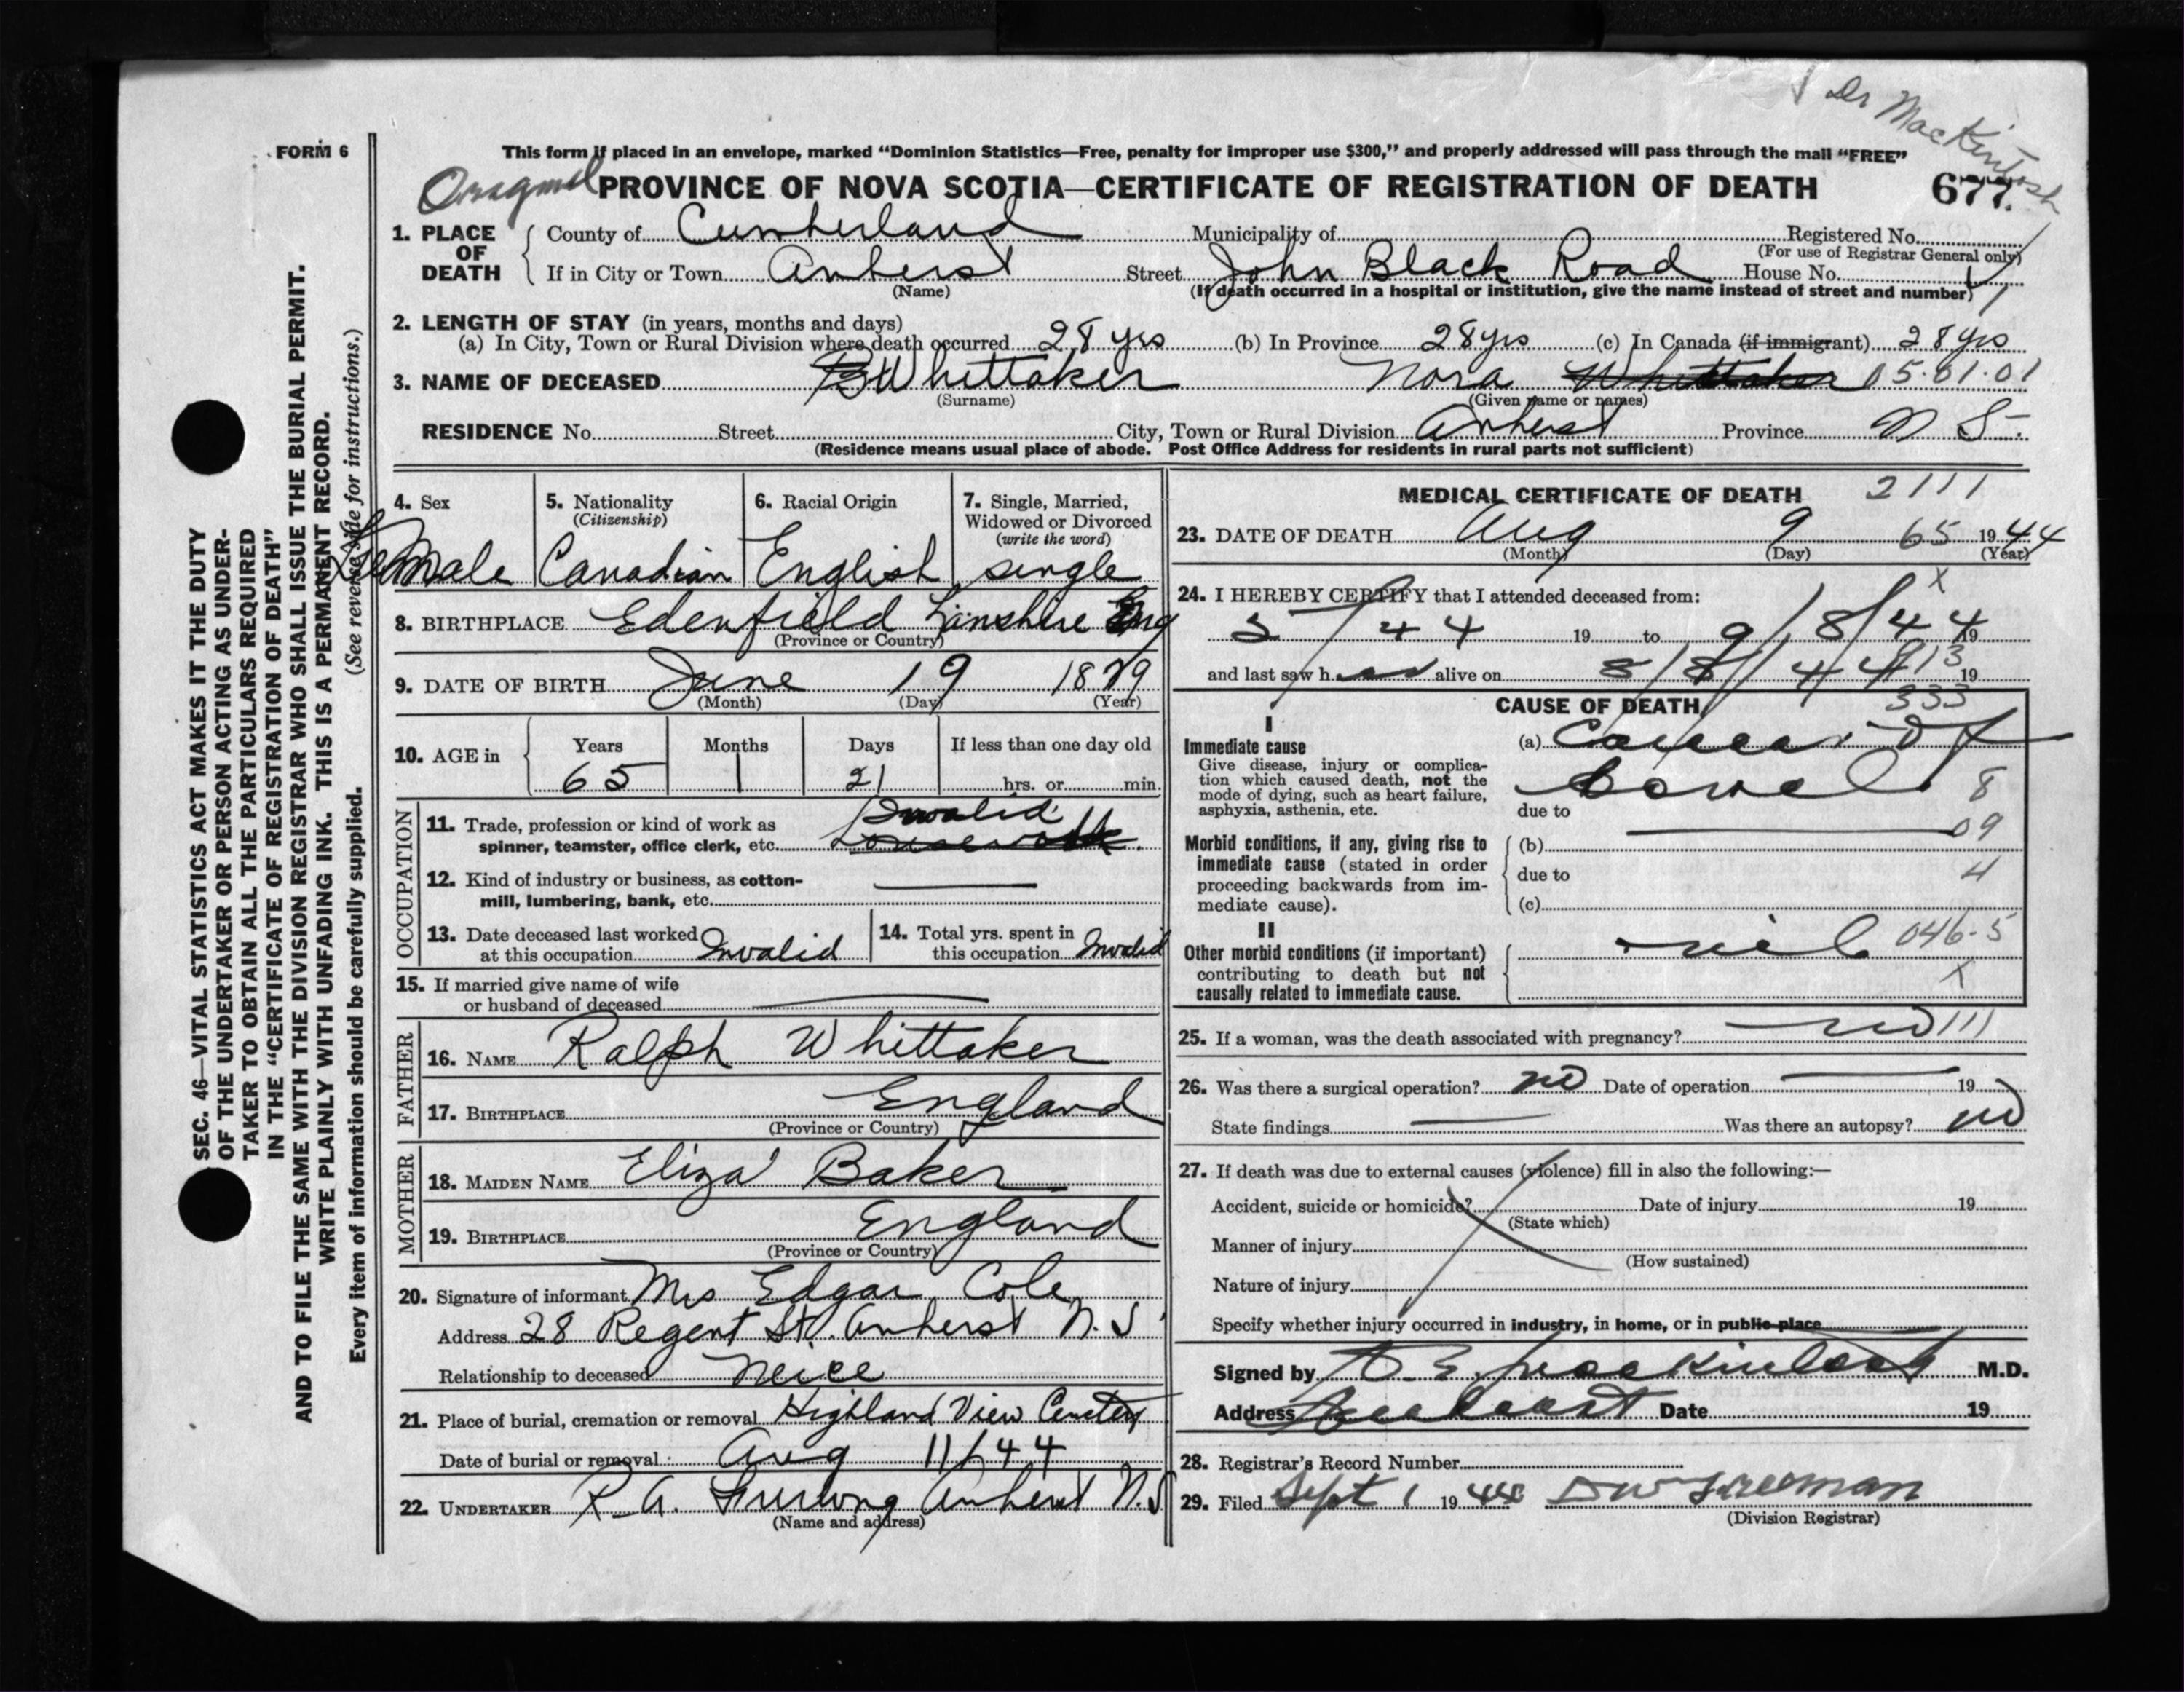 Dr MacKintosh
FORM 6
This form if placed in an envelope, marked "Dominion Statistics—Free, penalty for improper use $300," and properly addressed will pass through the mail "FREE"
Oragnal PROVINCE OF NOVA SCOTIA—CERTIFICATE OF REGISTRATION OF DEATH 677.
1. PLACE OF DEATH County of Cumberland Municipality of Registered No.
(For use of Registrar General only)
If in City or Town Amherst Street John Black Road House No.
(Name) (If death occurred in a hospital or institution, give the name instead of street and number)
2. LENGTH OF STAY (in years, months and days)
(a) In City, Town or Rural Division where death occurred 28 yrs (b) In Province 28 yrs (c) In Canada (if immigrant) 28 yrs
3. NAME OF DECEASED Whittaker Nora Whittaker 05.01.01
(Surname) (Given name or names)
RESIDENCE No. Street City, Town or Rural Division Amherst Province N S.
(Residence means usual place of abode. Post Office Address for residents in rural parts not sufficient)
4. Sex
Female
5. Nationality
(Citizenship)
Canadian
6. Racial Origin
English
7. Single, Married,
Widowed or Divorced
(write the word)
single
8. BIRTHPLACE Edenfield Lanshire Eng
(Province or Country)
9. DATE OF BIRTH June 19 1879
(Month) (Day) (Year)
10. AGE in Years Months Days If less than one day old
65 1 21 hrs. or min.
OCCUPATION
11. Trade, profession or kind of work as Invalid
spinner, teamster, office clerk, etc. housework
12. Kind of industry or business, as cotton-
mill, lumbering, bank, etc.
13. Date deceased last worked
at this occupation Invalid
14. Total yrs. spent in
this occupation Invalid
15. If married give name of wife
or husband of deceased
FATHER
16. NAME Ralph Whittaker
17. BIRTHPLACE England
(Province or Country)
MOTHER
18. MAIDEN NAME Eliza Baker
19. BIRTHPLACE England
(Province or Country)
20. Signature of informant Mrs Edgar Cole
Address 28 Regent St. Amherst N.S
Relationship to deceased Neice
21. Place of burial, cremation or removal Highland View Cemetery
Date of burial or removal Aug 11/44
22. UNDERTAKER R. A. Furlong Amherst N.S
(Name and address)
MEDICAL CERTIFICATE OF DEATH 2111
23. DATE OF DEATH Aug 9 65 1944
(Month) (Day) (Year)
24. I HEREBY CERTIFY that I attended deceased from: x
5/44 19 to 9/8/44 19
and last saw h alive on 8/8/44 19
913
CAUSE OF DEATH 333
I
Immediate cause
Give disease, injury or complica-
tion which caused death, not the
mode of dying, such as heart failure,
asphyxia, asthenia, etc.
(a) Cancer of
bowel 8
due to
Morbid conditions, if any, giving rise to
immediate cause (stated in order
proceeding backwards from im-
mediate cause).
09
(b)
due to 4
(c)
II
Other morbid conditions (if important)
contributing to death but not
causally related to immediate cause.
nil 046-5
x
25. If a woman, was the death associated with pregnancy? no 111
26. Was there a surgical operation? no Date of operation 19
State findings Was there an autopsy? no
27. If death was due to external causes (violence) fill in also the following:—
Accident, suicide or homicide? Date of injury 19
(State which)
Manner of injury
(How sustained)
Nature of injury
Specify whether injury occurred in industry, in home, or in public place
Signed by MacKintosh M.D.
Address Amherst Date 19
28. Registrar's Record Number
29. Filed Sept 1 1944 D W Freeman
(Division Registrar)
SEC. 46—VITAL STATISTICS ACT MAKES IT THE DUTY
OF THE UNDERTAKER OR PERSON ACTING AS UNDER-
TAKER TO OBTAIN ALL THE PARTICULARS REQUIRED
IN THE "CERTIFICATE OF REGISTRATION OF DEATH"
AND TO FILE THE SAME WITH THE DIVISION REGISTRAR WHO SHALL ISSUE THE BURIAL PERMIT.
WRITE PLAINLY WITH UNFADING INK. THIS IS A PERMANENT RECORD.
Every item of information should be carefully supplied. (See reverse side for instructions.)